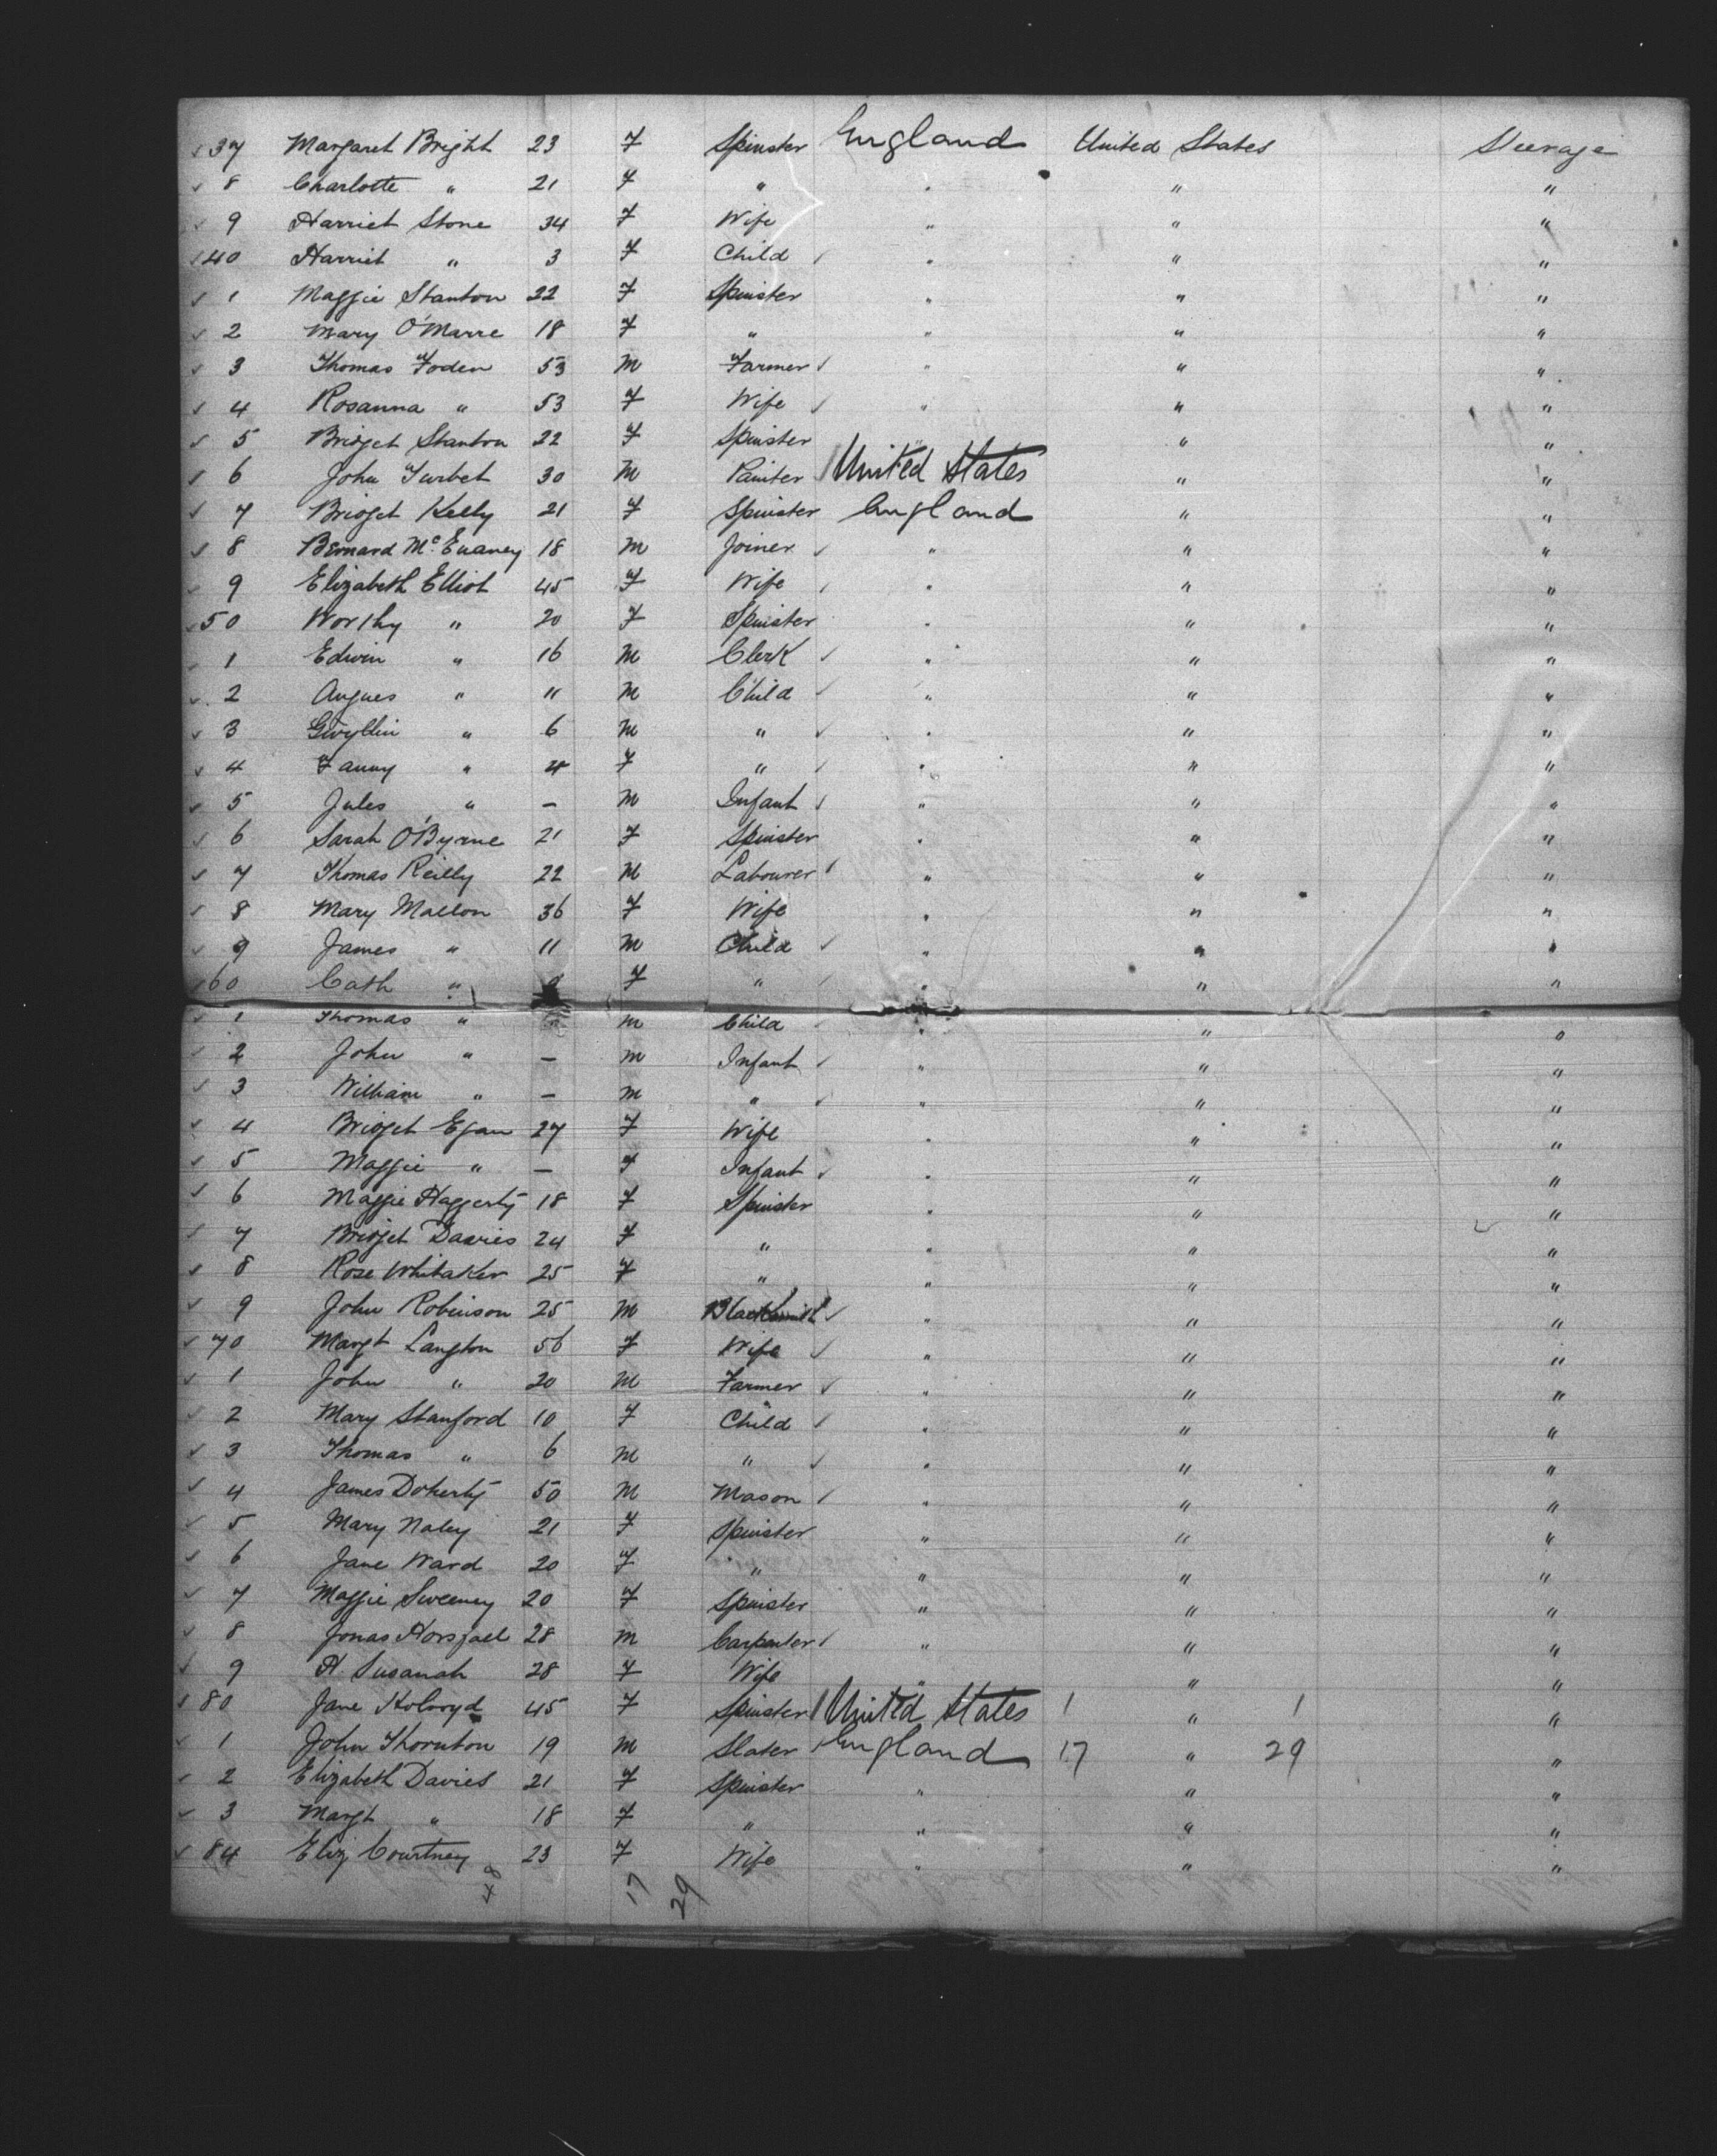 37 Margaret Bright 23 F Spinster England United States Steerage
8 Charlotte " 21 F " " " "
9 Harriet Stone 34 F Wife " " "
40 Harriet " 3 F Child " " "
1 Maggie Stanton 22 F Spinster " " "
2 Mary O'Marre 18 F " " " "
3 Thomas Foden 53 M Farmer " " "
4 Rosanna " 53 F Wife " " "
5 Bridget Stanton 22 F Spinster " " "
6 John Turbet 30 M Painter United States " "
7 Bridget Kelly 21 F Spinster England " "
8 Bernard McEnaney 18 M Joiner " " "
9 Elizabeth Elliot 45 F Wife " " "
50 Worthy " 20 F Spinster " " "
1 Edwin " 16 M Clerk " " "
2 Augues " 11 M Child " " "
3 Gwyllin " 6 M " " " "
4 Fanny " 4 F " " " "
5 Jules " – M Infant " " "
6 Sarah O'Byrne 21 F Spinster " " "
7 Thomas Reilly 22 M Labourer " " "
8 Mary Mallon 36 F Wife " " "
9 James " 11 M Child " " "
60 Cath " F " " " "
1 Thomas " M Child " " "
2 John " – M Infant " " "
3 William " – M " " " "
4 Bridget Egan 27 F Wife " " "
5 Maggie " – F Infant " " "
6 Maggie Haggerty 18 F Spinster " " "
7 Bridget Davies 24 F " " " "
8 Rose Whitaker 25 F " " " "
9 John Robinson 25 M Blacksmith " " "
70 Margt Langton 56 F Wife " " "
1 John " 20 M Farmer " " "
2 Mary Stanford 10 F Child " " "
3 Thomas " 6 M " " " "
4 James Doherty 50 M Mason " " "
5 Mary Naley 21 F Spinster " " "
6 Jane Ward 20 F " " " "
7 Maggie Sweeney 20 F Spinster " " "
8 Jonas Horsfall 28 M Carpenter " " "
9 H. Susanah 28 F Wife " " "
80 Jane Holroyd 45 F Spinster United States 1 " 1 "
1 John Thornton 19 M Slater England 17 " 29 "
2 Elizabeth Davies 21 F Spinster " " "
3 Margt " 18 F " " " "
84 Eliz Courtney 23 F Wife " " "
48 17 29